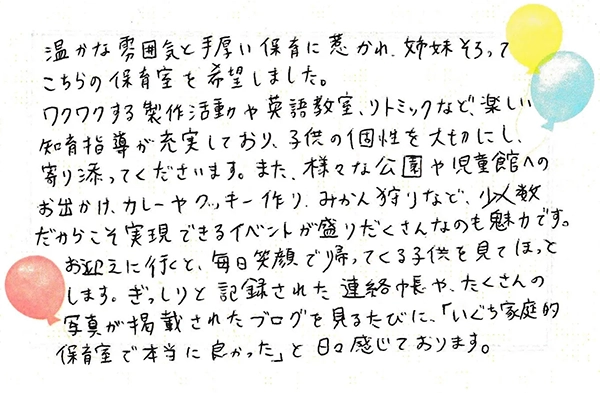 温かな雰囲気と手厚い保育に惹かれ、姉妹そろって
こちらの保育室を希望しました。
ワクワクする製作活動や英語教室、リトミックなど、楽しい
知育指導が充実しており、子供の個性を大切にし、
寄り添ってくださいます。また、様々な公園や児童館への
お出かけ、カレーやクッキー作り、みかん狩りなど、少人数
だからこそ実現できるイベントが盛りだくさんなのも魅力です。
お迎えに行くと、毎日笑顔で帰ってくる子供を見てほっと
します。ぎっしりと記録された連絡帳や、たくさんの
写真が掲載されたブログを見るたびに、「いぐち家庭的
保育室で本当に良かった」と日々感じております。